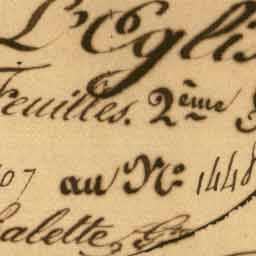 L'Eglis
Feuilles. 2ème
07 au No. 1448
alette